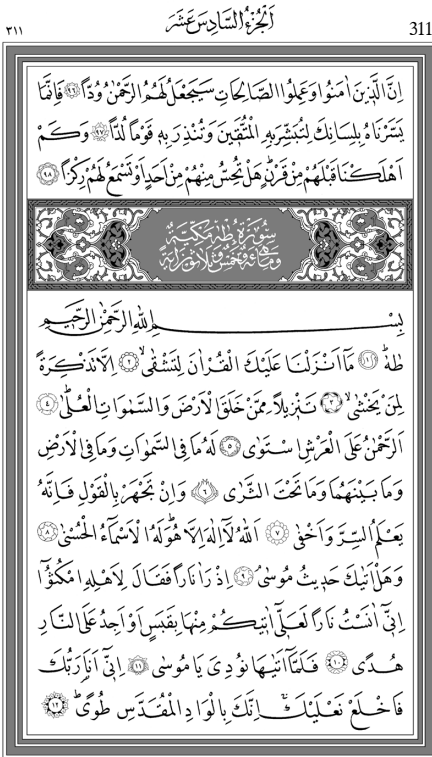 ٣١١ اَلْجُزْءُ السَّادِسَ عَشَرَ 311
اِنَّ الَّذ۪ينَ اٰمَنُوا وَعَمِلُوا الصَّالِحَاتِ سَيَجْعَلُ لَهُمُ الرَّحْمٰنُ وُدًّا ﴿٩٦﴾ فَاِنَّمَا
يَسَّرْنَاهُ بِلِسَانِكَ لِتُبَشِّرَ بِهِ الْمُتَّق۪ينَ وَتُنْذِرَ بِه۪ قَوْمًا لُدًّا ﴿٩٧﴾ وَكَمْ
اَهْلَكْنَا قَبْلَهُمْ مِنْ قَرْنٍۜ هَلْ تُحِسُّ مِنْهُمْ مِنْ اَحَدٍ اَوْ تَسْمَعُ لَهُمْ رِكْزًا ﴿٩٨﴾
سُورَةُ طٰهٰ مَكِّيَّةٌ
وَهِيَ مِائَةٌ وَخَمْسٌ وَثَلَاثُونَ اٰيَةً
بِسْمِ اللّٰهِ الرَّحْمٰنِ الرَّح۪يمِ
طٰهٰۜ ﴿١﴾ مَٓا اَنْزَلْنَا عَلَيْكَ الْقُرْاٰنَ لِتَشْقٰىۙ ﴿٢﴾ اِلَّا تَذْكِرَةً
لِمَنْ يَخْشٰىۙ ﴿٣﴾ تَنْز۪يلًا مِمَّنْ خَلَقَ الْاَرْضَ وَالسَّمٰوَاتِ الْعُلٰىۜ ﴿٤﴾
اَلرَّحْمٰنُ عَلَى الْعَرْشِ اسْتَوٰى ﴿٥﴾ لَهُ مَا فِي السَّمٰوَاتِ وَمَا فِي الْاَرْضِ
وَمَا بَيْنَهُمَا وَمَا تَحْتَ الثَّرٰى ﴿٦﴾ وَاِنْ تَجْهَرْ بِالْقَوْلِ فَاِنَّهُ
يَعْلَمُ السِّرَّ وَاَخْفٰى ﴿٧﴾ اَللّٰهُ لَٓا اِلٰهَ اِلَّا هُوَۜ لَهُ الْاَسْمَٓاءُ الْحُسْنٰى ﴿٨﴾
وَهَلْ اَتٰيكَ حَد۪يثُ مُوسٰىۢ ﴿٩﴾ اِذْ رَاٰ نَارًا فَقَالَ لِاَهْلِهِ امْكُثُٓوا
اِنّ۪ٓي اٰنَسْتُ نَارًا لَعَلّ۪ٓي اٰت۪يكُمْ مِنْهَا بِقَبَسٍ اَوْ اَجِدُ عَلَى النَّارِ
هُدًى ﴿١٠﴾ فَلَمَّٓا اَتٰيهَا نُودِيَ يَا مُوسٰى ﴿١١﴾ اِنّ۪ٓي اَنَا۬ رَبُّكَ
فَاخْلَعْ نَعْلَيْكَۚ اِنَّكَ بِالْوَادِ الْمُقَدَّسِ طُوًىۜ ﴿١٢﴾